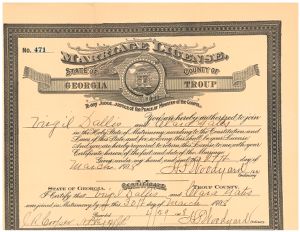 No. 471
MARRIAGE LICENSE.
STATE OF COUNTY OF
GEORGIA TROUP
To any Judge, Justice of the Peace, or Minister of the Gospel.
You are hereby authorized to join
Virgil Sallis and Bates
in the Holy State of Matrimony, according to the Constitution and
Laws of this State, and for so doing this shall be your License.
And you are hereby required to return this License to me, with your
Certificate hereon of the fact and date of the Marriage.
Given under my hand and seal this day of
March 1928
STATE OF GEORGIA, CERTIFICATE TROUP COUNTY.
I Certify that Virgil Sallis and Bates
were joined in Matrimony by me this 30th day of March 1928
Recorded 4/29 28